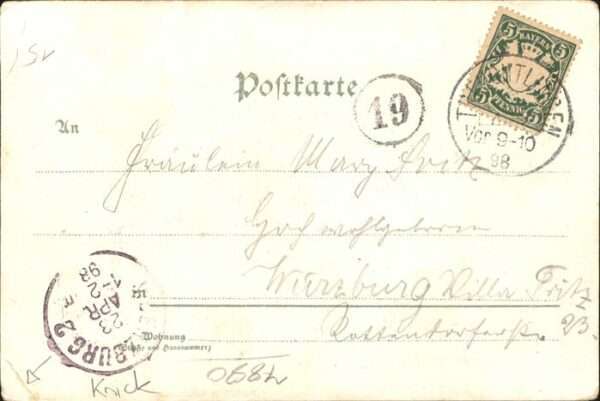 5 BAYERN 5
5 PFENNIG 5
TUTTLINGEN
Vor 9-10
98
Postkarte
19
An
Fräulein Mary Fritz
Hochwohlgeboren
in Würzburg Villa Fritz
Rottendorferstr. 23.
Wohnung
(Straße und Hausnummer)
BURG 2
23
APR
98
Knick
0684